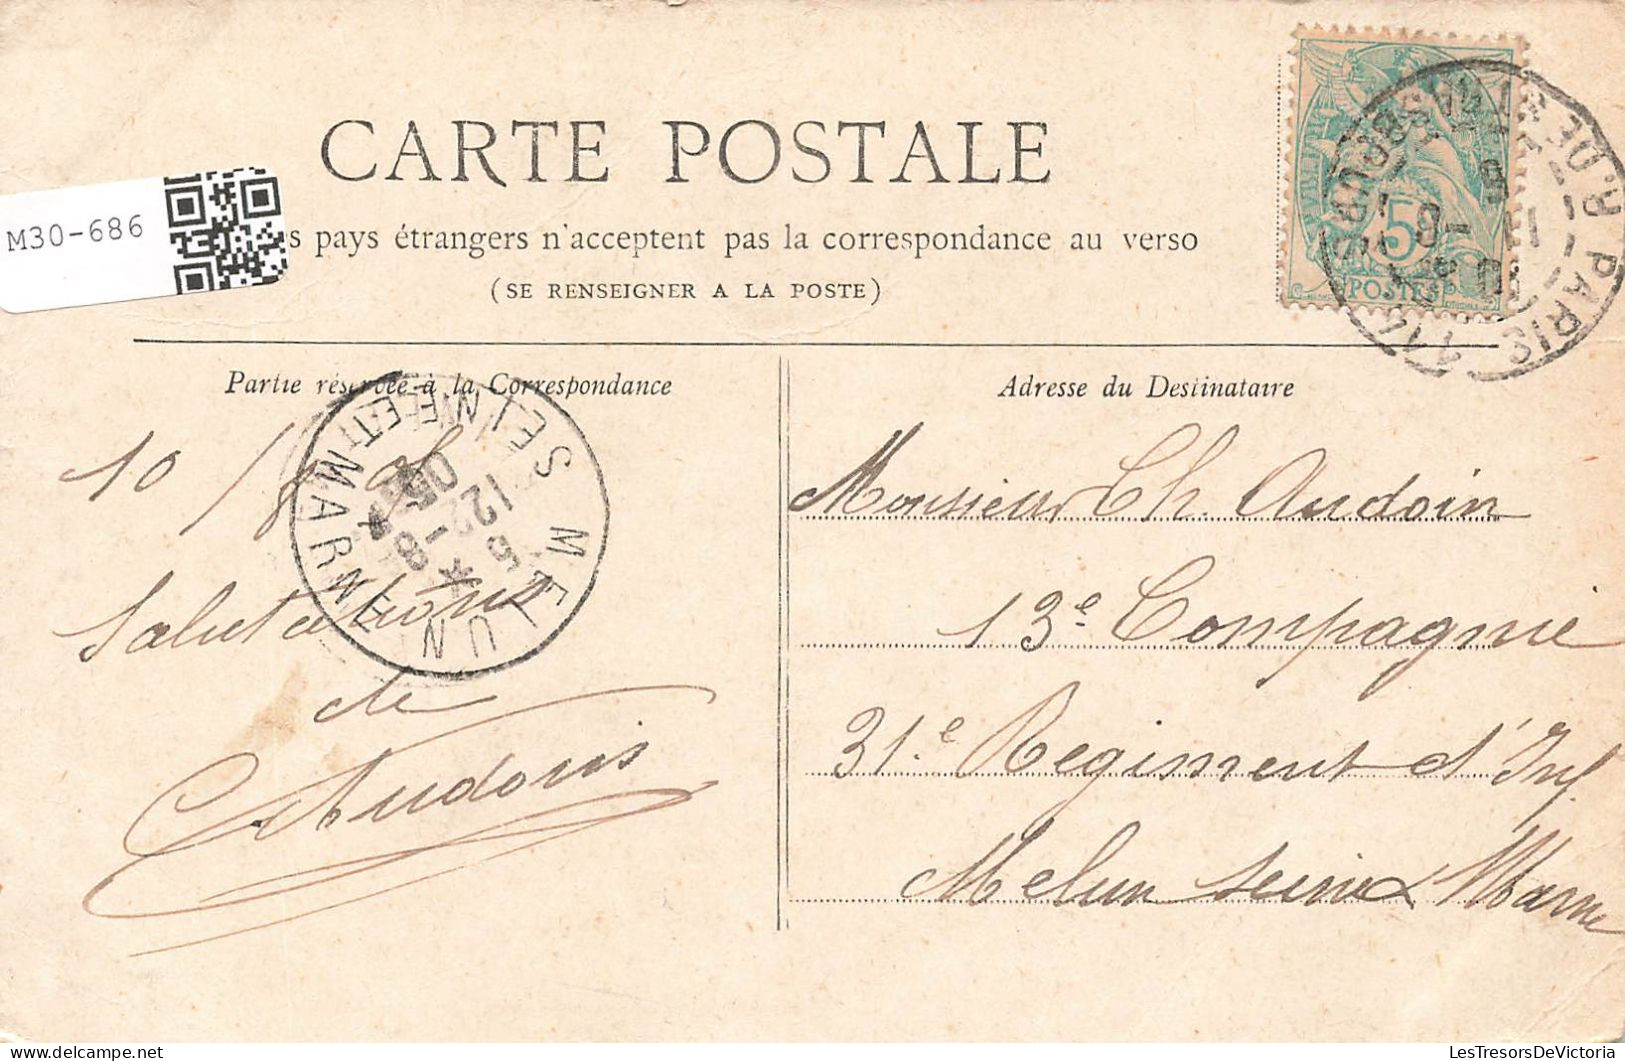 CARTE POSTALE
M30-686
s pays étrangers n'acceptent pas la correspondance au verso
(SE RENSEIGNER A LA POSTE)
5
POSTES
R. DE STRASBOURG PARIS
Partie réservée à la Correspondance
Adresse du Destinataire
MELUN
SEINE ET MARNE
12
8 - 5
05
10/8 05
Salutations
de
Audoin
Monsieur Ch. Audoin
13e Compagnie
31.e Regiment d'Inf.
Melun Seine & Marne
LesTresorsDeVictoria